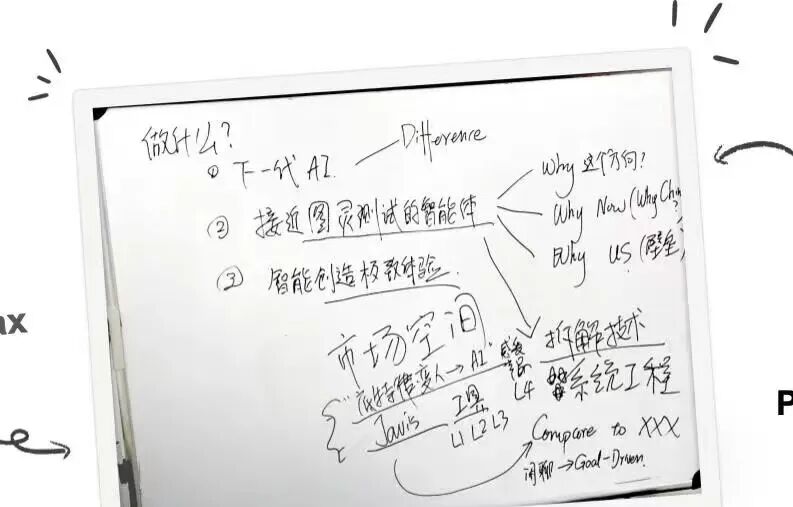 做什么?
① 下一代 AI.
Difference
② 接近图灵测试的智能体
Why 这个方向?
Why Now (Why Chi
Why US (壁垒)
③ 智能创造极致体验.
市场空间
拆解技术
系统工程
变人→AI"
L4
Javis 工具
L1 L2 L3
Compare to XXX
闲聊→Goal-Driven.
ax
P